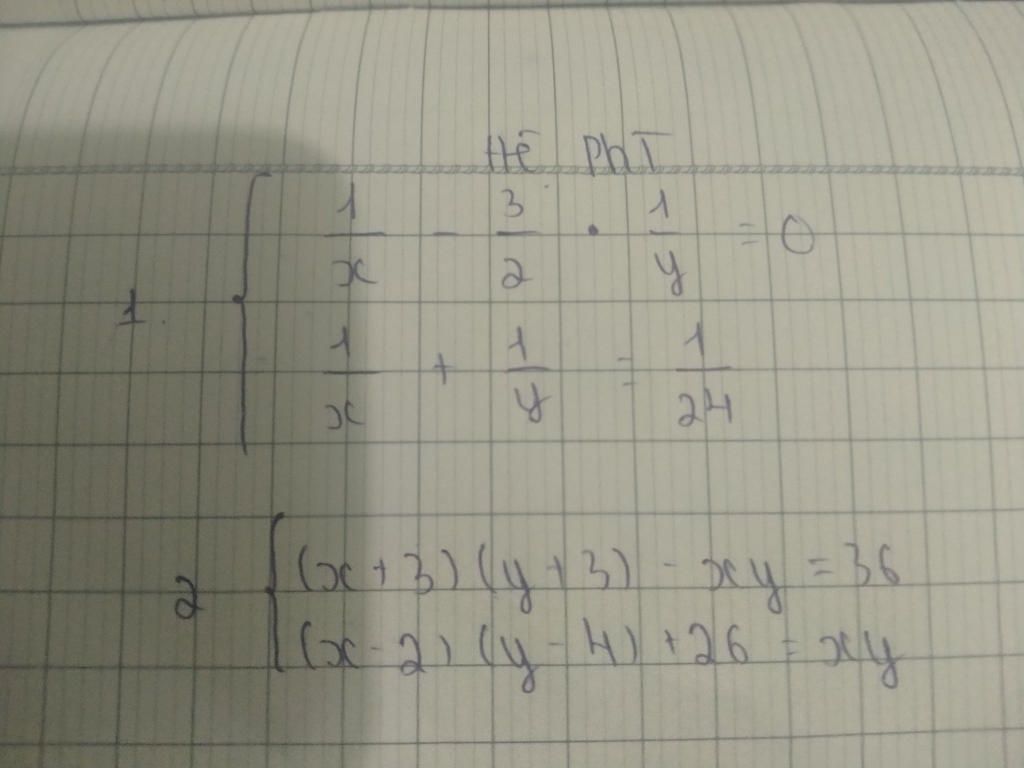 Hệ PhT
1. { 1/x - 3/2 · 1/y = 0
1/x + 1/y = 1/24
2 { (x + 3) (y + 3) - xy = 36
(x - 2) (y - 4) + 26 = xy